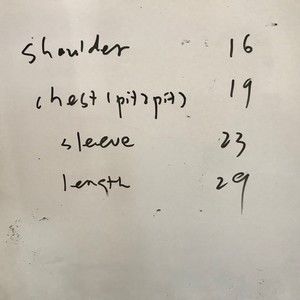 shoulder 16
chest (pit2pit) 19
sleeve 23
length 29